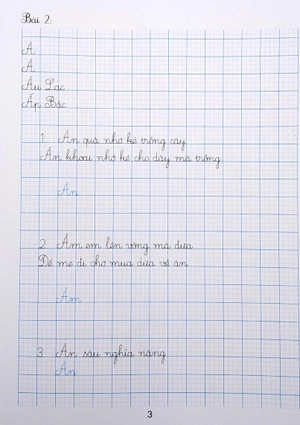 Bài 2:
Ă
Â
Âu Lạc
Ấp Bắc
1. Ăn quả nhớ kẻ trồng cây
Ăn khoai nhớ kẻ cho dây mà trồng
Ăn
2. Ẵm em lên võng mà đưa
Để mẹ đi chợ mua dừa về ăn
Ẵm
3. Ân sâu nghĩa nặng
Ân
3